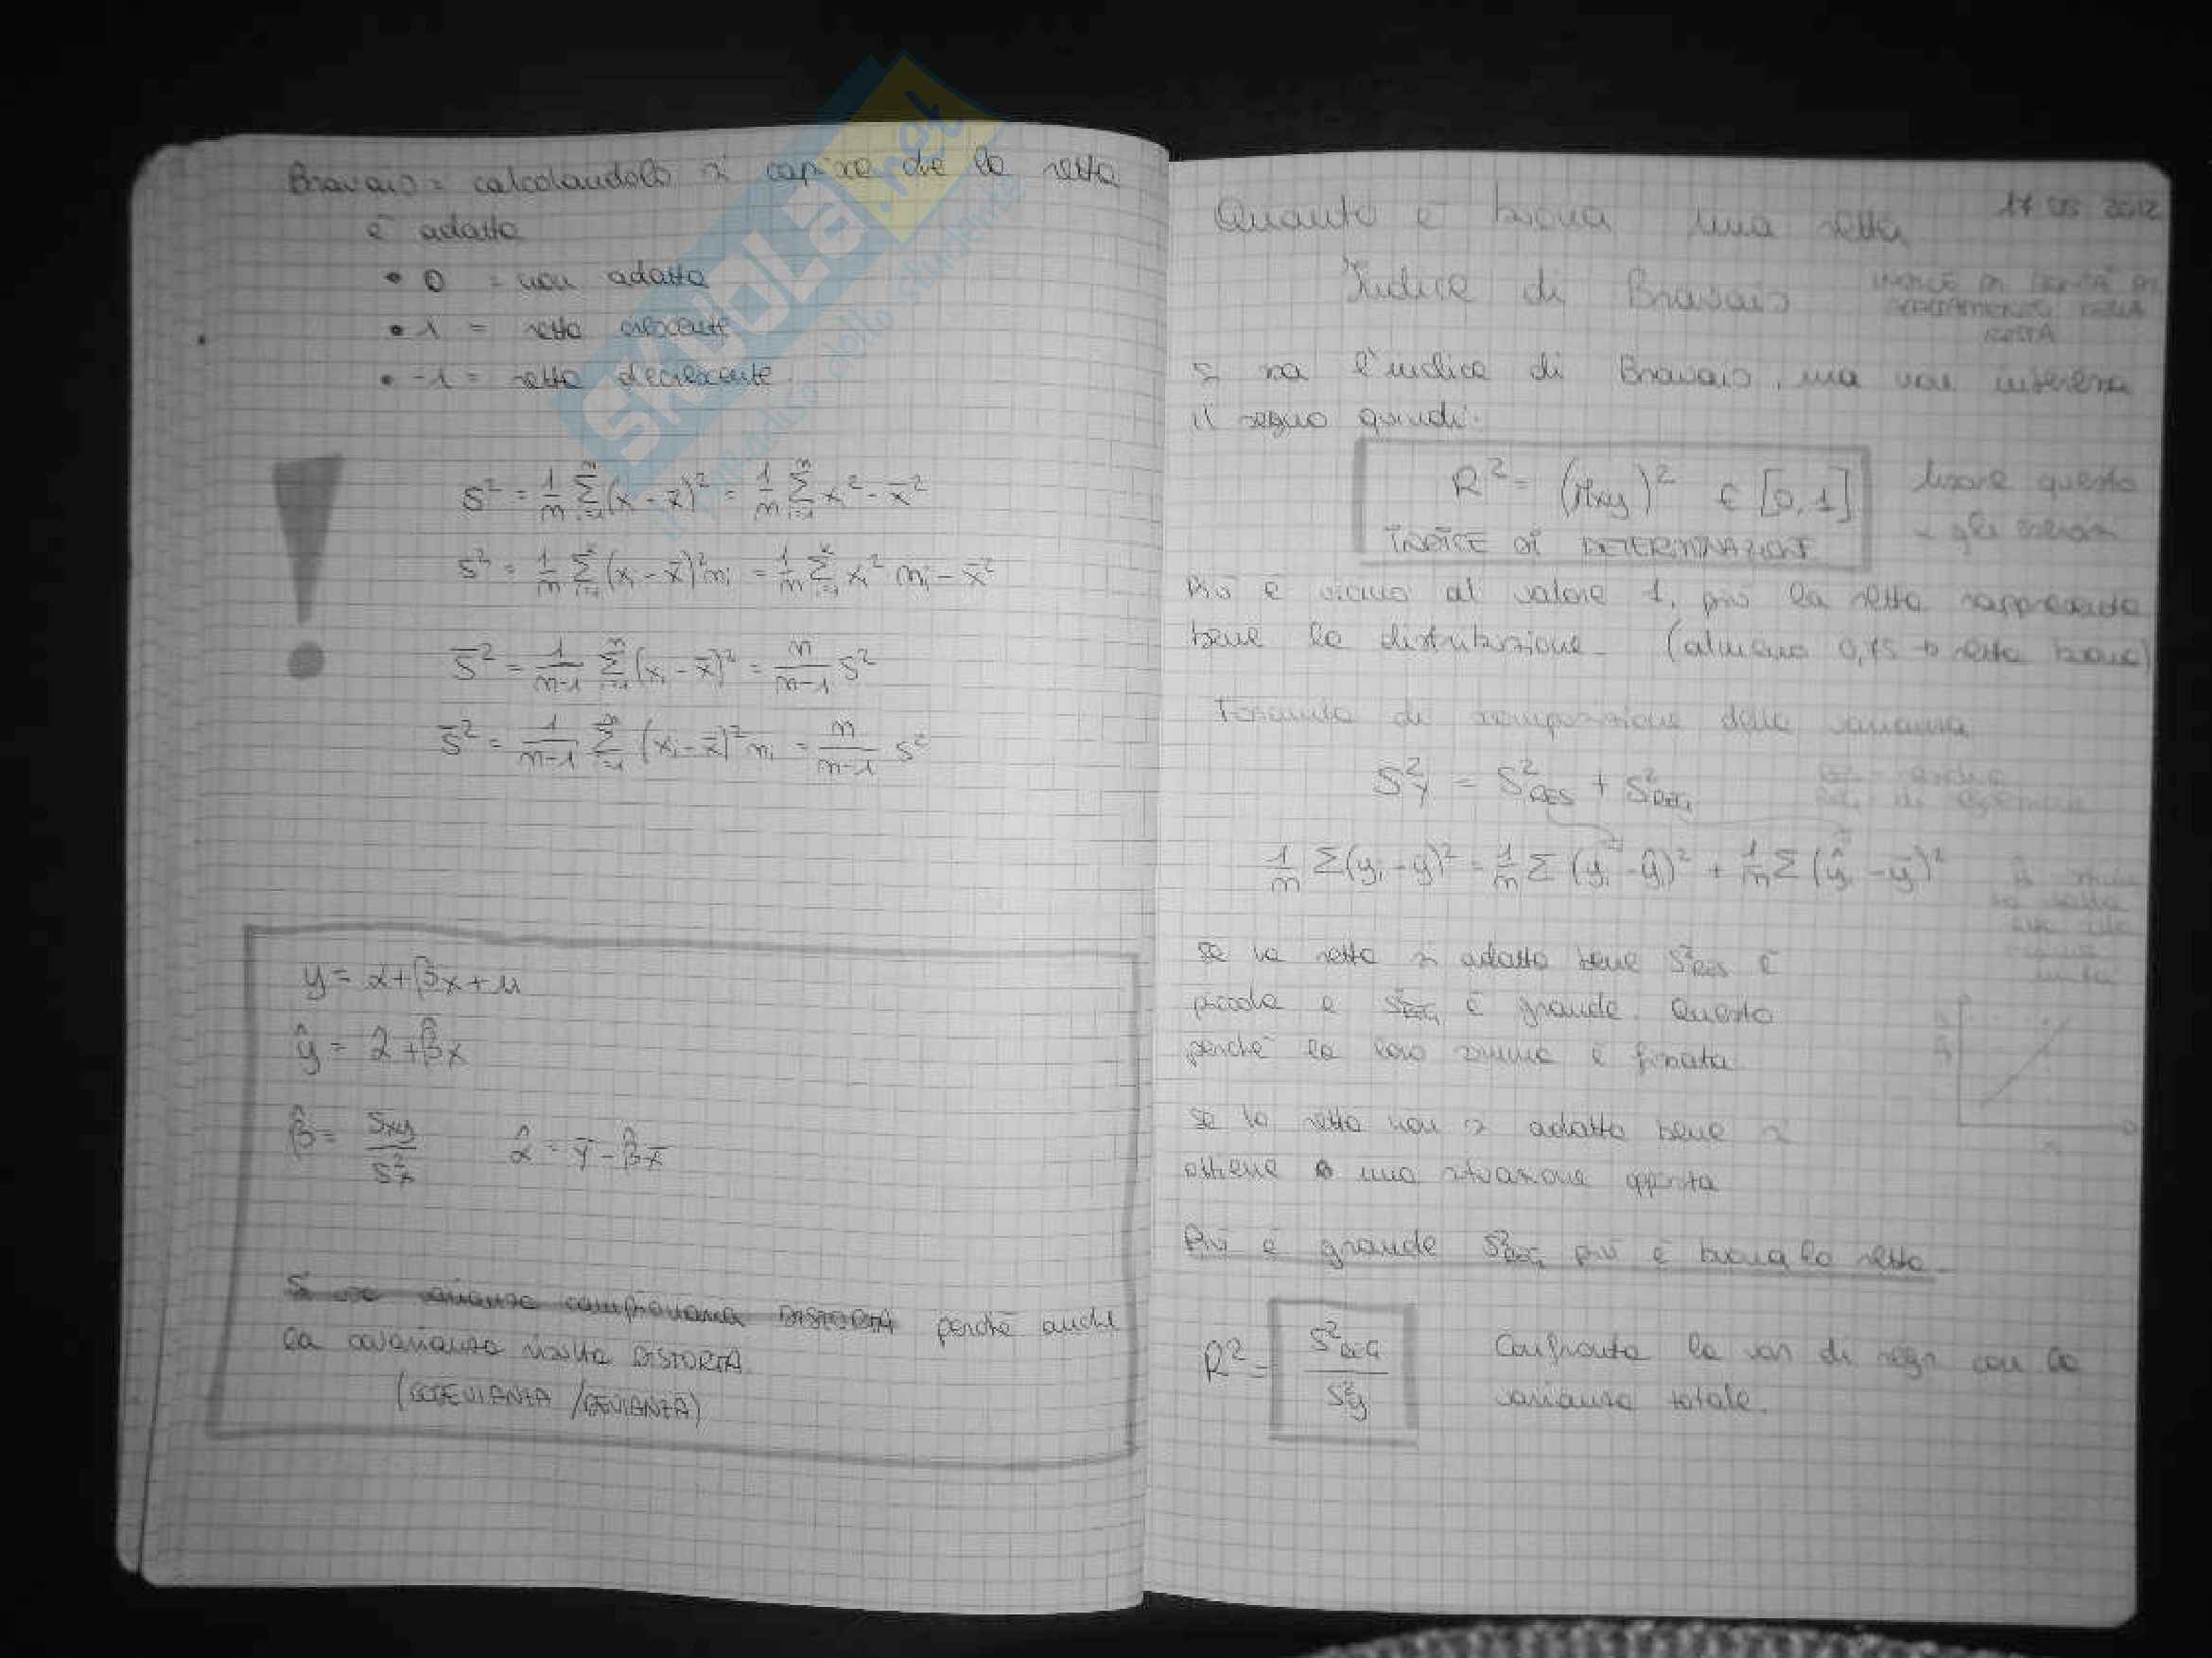 Bravais = calcolandolo si capisce che la retta
è adatta
• 0 = non adatta
• 1 = retta crescente
• -1 = retta decrescente
S² = 1/n Σ(x - x̄)² = 1/n Σ x² - x̄²
S² = 1/n Σ(xi - x̄)² ni = 1/n Σ xi² ni - x̄²
S̄² = 1/(n-1) Σ(xi - x̄)² = n/(n-1) S²
S̄² = 1/(n-1) Σ(xi - x̄)² ni = n/(n-1) S²
y = α + βx + u
ŷ = α̂ + β̂x
β̂ = Sxy/S²x   α̂ = ȳ - β̂x̄
Si usa varianza campionaria DISTORTA perché anche
la covarianza risulta DISTORTA
(CODEVIANZA / DEVIANZA)
17 05 2012
Quanto è buona una retta
Indice di Bravais
INDICE DI BONTÀ DI
ADATTAMENTO DELLA
RETTA
Si usa l'indice di Bravais, ma non interessa
il segno quindi:
R² = (rxy)² ∈ [0,1]
INDICE DI DETERMINAZIONE
usare questo
Più è vicino al valore 1, più la retta rappresenta
bene la distribuzione. (almeno 0,75 → retta buona)
Formula di scomposizione della varianza
S²y = S²RES + S²REG
1/n Σ(yi - ȳ)² = 1/n Σ(yi - ŷi)² + 1/n Σ(ŷi - ȳ)²
Se la retta si adatta bene S²RES è
piccola e S²REG è grande. Questo
perché la loro somma è fissata.
Se la retta non si adatta bene si
ottiene una situazione opposta
Più è grande S²REG più è buona la retta.
R² = S²REG/S²y
Confronta la var di regr con la
varianza totale.
SKUOLA.net